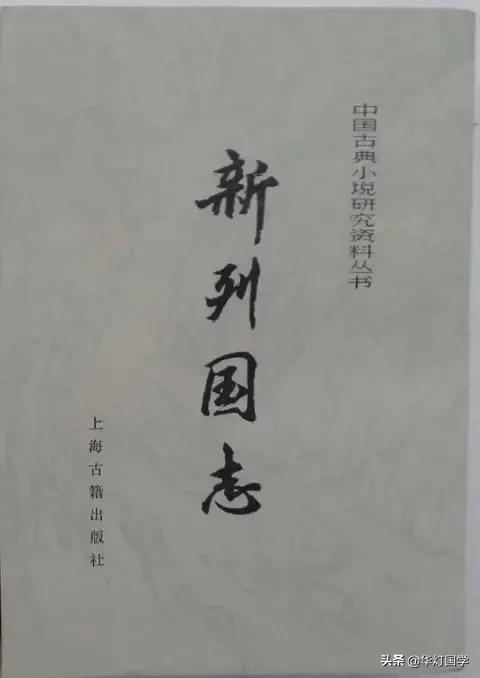 中国古典小说研究资料丛书
新列国志
上海古籍出版社
头条 @华灯国学